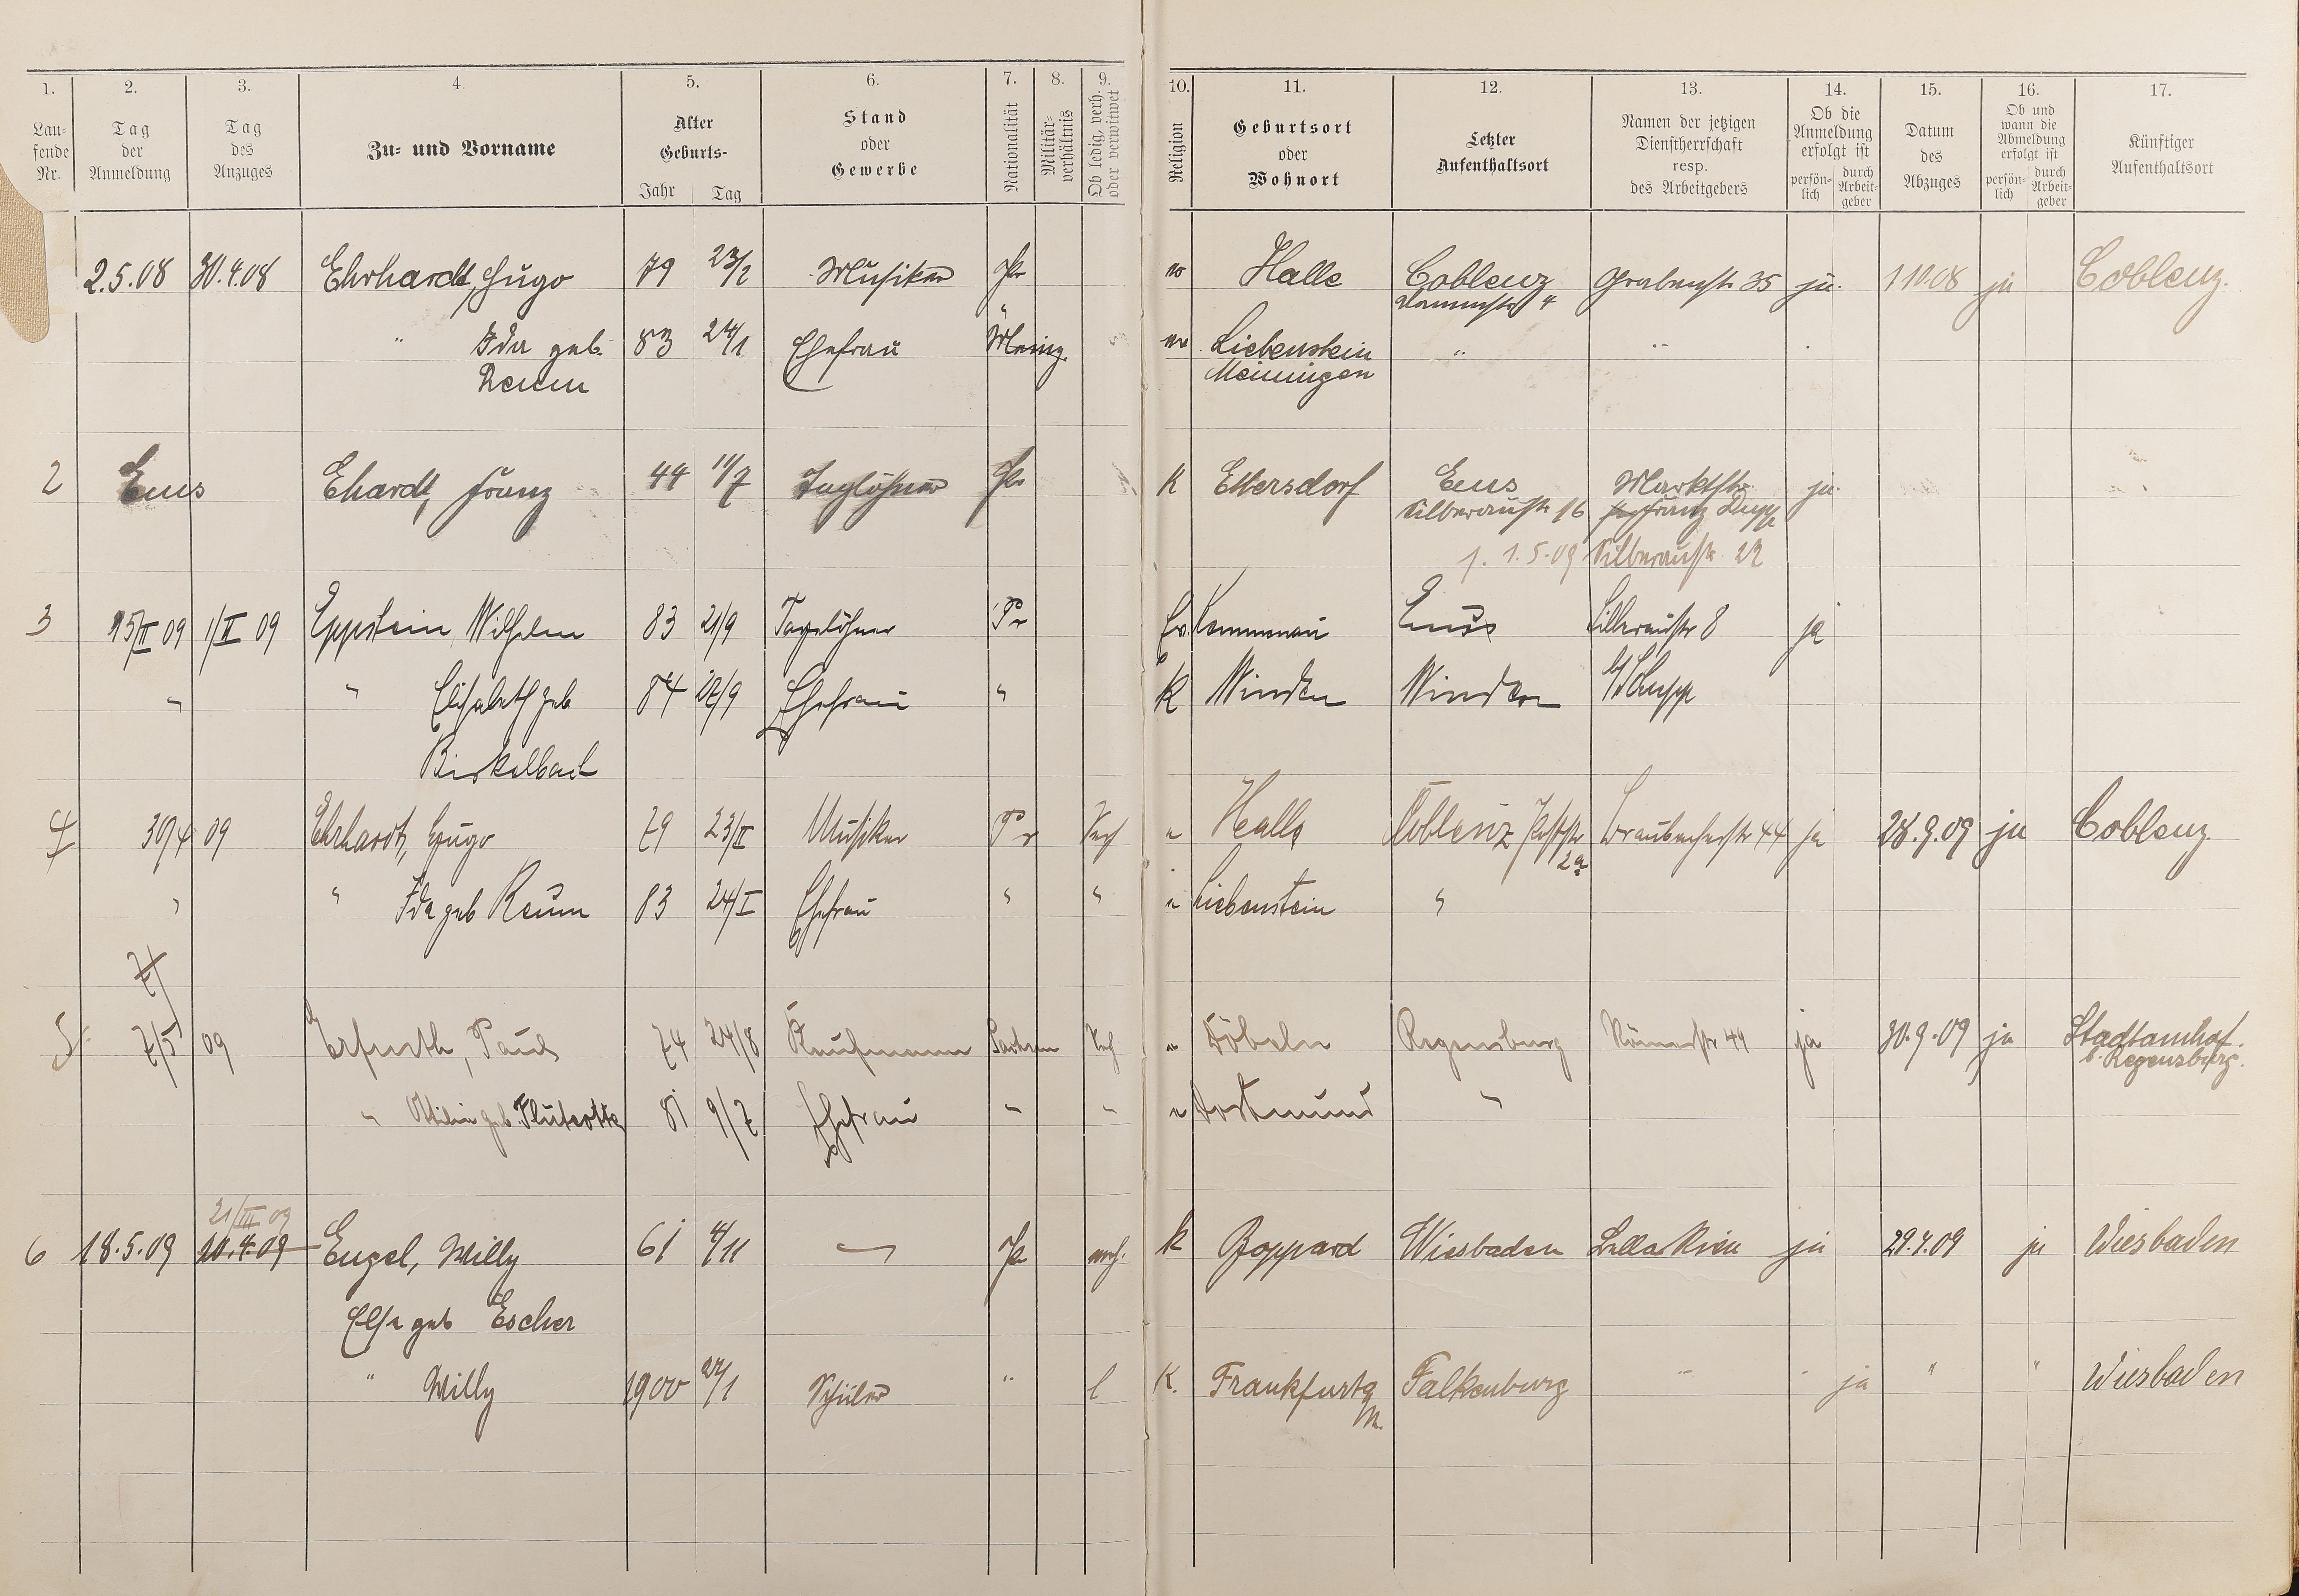 1. 2. 3. 4. 5. 6. 7. 8. 9. 10. 11. 12. 13. 14. 15. 16. 17.
Laufende Nr.
Tag der Anmeldung
Tag des Anzuges
Zu= und Vorname
Alter
Geburts-
Jahr Tag
Stand oder Gewerbe
Nationalität
Militär-verhältnis
Ob ledig, verh. oder verwitwet
Religion
Geburtsort oder Wohnort
Letzter Aufenthaltsort
Namen der jetzigen Dienstherrschaft resp. des Arbeitgebers
Ob die Anmeldung erfolgt ist
persön-lich durch Arbeit-geber
Datum des Abzuges
Ob und wann die Abmeldung erfolgt ist
persön-lich durch Arbeit-geber
Künftiger Aufenthaltsort
2.5.08 30.4.08 Ehrhardt, Hugo 79 23/2 Musiker Pr Halle Coblenz Grabenstr 35 ja. 1 10.08 ja Coblenz.
" Ida geb. 83 24/1 Ehefrau Meing. Liebenstein " "
Reum Meiningen
2 Ems Ehardt, Franz 44 11/7 Taglöhner Pr K Eltersdorf Ems Marktstr. ja.
Silberaustr 16 Franz Dupp
1. 1.5.09 Silberaustr. 22
3 15/II 09 1/II 09 Eppstein Wilhelm 83 21/9 Tagelöhner Pr Ev. Kemmenau Ems Silberaustr 8 ja
" " Elisabeth geb 84 /9 Ehefrau " K Winden Winden
Birkelbach
4 30/4 09 Ehrhardt, Hugo 79 23/II Musiker Pr Verh " Halle Coblenz Poststr 2a Braubacherstr 44 ja 28.9.09 ja Coblenz.
" " Ida geb Reum 83 24/I Ehefrau " " " Liebenstein "
7/
5 7/5 09 Erfurth, Paul 74 24/8 Kaufmann Sachsen Verh " Döbeln Regensburg Römerstr 49 ja 30.9.09 ja Stadtamhof.
b. Regensburg.
" Ottilie geb. Flutrotte 81 9/7 Ehefrau " " " Dortmund "
21/III 09
6 18.5.09 10.4.09 Engel, Willy 61 4/11 — Pr verh. k Boppard Wiesbaden Bella Riva ja 29.7.09 ja Wiesbaden
Else geb Escher
" Willy 1900 27/1 Schüler " l K. Frankfurt a/M. Falkenburg " " ja " " Wiesbaden